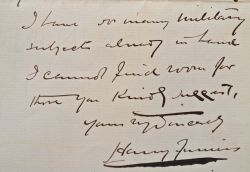 I have so many military
subjects already in hand
I cannot find room for
those you kindly suggest,
Yours vy Sincerely
Harry Furniss